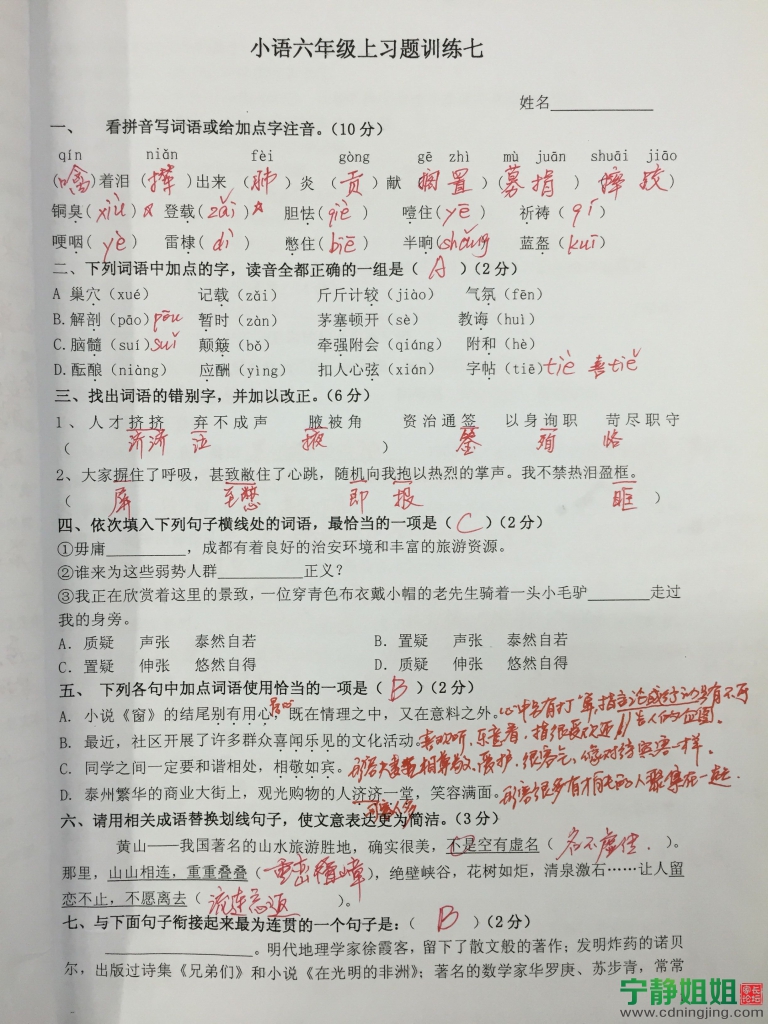 小语六年级上习题训练七
姓名____________
一、 看拼音写词语或给加点字注音。(10分)
qín niǎn fèi gòng gē zhì mù juān shuāi jiāo
(噙)着泪 (撵)出来 (肺)炎 (贡)献 搁置)(募捐) 摔跤)
铜臭(xiù) 登载(zǎi) 胆怯(qiè) 噎住(yē) 祈祷(qí)
哽咽(yè) 雷棣(dì) 憋住(biē) 半晌(shǎng) 蓝盔(kuī)
二、下列词语中加点的字，读音全都正确的一组是( A )(2分)
A 巢穴(xué) 记载(zǎi) 斤斤计较(jiào) 气氛(fēn)
B.解剖(pāo)pōu 暂时(zàn) 茅塞顿开(sè) 教诲(huì)
C.脑髓(suí)suǐ 颠簸(bǒ) 牵强附会(qiáng) 附和(hè)
D.酝酿(niàng) 应酬(yìng) 扣人心弦(xián) 字帖(tiē)tiè 喜tiě
三、找出词语的错别字，并加以改正。(6分)
1、人才挤挤 弃不成声 腋被角 资治通签 以身询职 苛尽职守
( 济济 泣 掖 ) 鉴 殉 恪
2、大家摒住了呼吸，甚致敝住了心跳，随机向我抱以热烈的掌声。我不禁热泪盈框。
( 屏 至憋 即 报 眶 )
四、依次填入下列句子横线处的词语，最恰当的一项是( C )(2分)
①毋庸_________，成都有着良好的治安环境和丰富的旅游资源。
②谁来为这些弱势人群__________正义？
③我正在欣赏着这里的景致，一位穿青色布衣戴小帽的老先生骑着一头小毛驴_______走过
我的身旁。
A. 质疑 声张 泰然自若 B. 置疑 声张 泰然自得
C. 置疑 伸张 悠然自得 D. 质疑 伸张 悠然自得
五、 下列各句中加点词语使用恰当的一项是( B )(2分)
A. 小说《窗》的结尾别有用心，既在情理之中，又在意料之外。心中另有打算,指言论或行动另有不可
告人的企图.
B. 最近，社区开展了许多群众喜闻乐见的文化活动。喜欢听,乐意看,指很受欢迎
C. 同学之间一定要和谐相处，相敬如宾。形容夫妻互相尊敬、爱护,很客气,像对待宾客一样.
D. 泰州繁华的商业大街上，观光购物的人济济一堂，笑容满面。形容很多有才能的人聚集在一起.
六、请用相关成语替换划线句子，使文意表达更为简洁。(3分)
黄山——我国著名的山水旅游胜地，确实很美，不是空有虚名( 名不虚传. )。
那里，山山相连，重重叠叠(重峦叠嶂)，绝壁峡谷，花树如炬，清泉激石……让人留
恋不止，不愿离去( 流连忘返 )。
七、与下面句子衔接起来最为连贯的一个句子是：( B )(2分)
________________。明代地理学家徐霞客，留下了散文般的著作；发明炸药的诺贝
尔，出版过诗集《兄弟们》和小说《在光明的非洲》；著名的数学家华罗庚、苏步青，常常
宁静姐姐
www.cdningjing.com